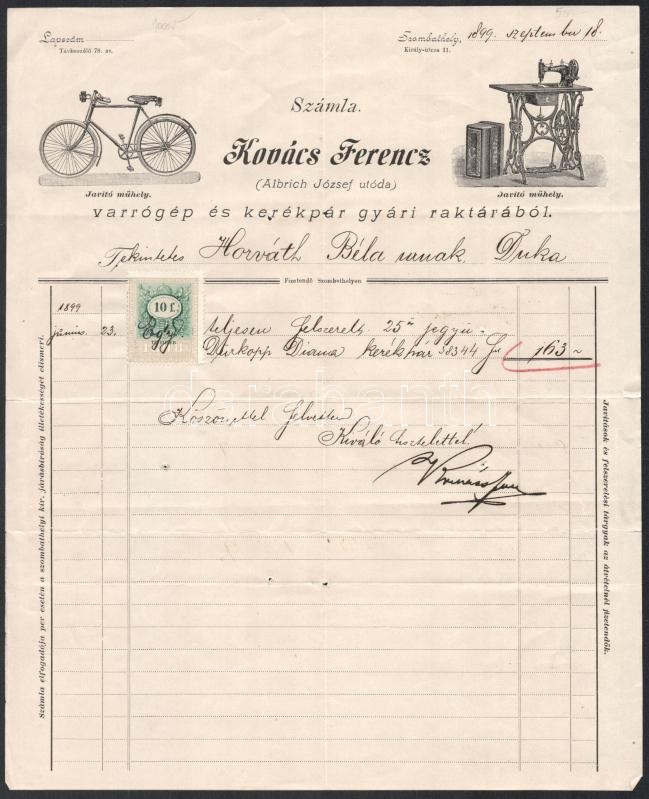 Lapszám
Távbeszélő 78. sz.
Szombathely, 1899. szeptember 18.
Király-utcza 11.
Számla.
Kovács Ferencz
(Albrich József utóda)
Javító műhely.
Javító műhely.
varrógép és kerékpár gyári raktárából.
Tekintetes Horváth Béla urnak, Duka
Fizetendő Szombathelyen
1899
junius 23.
10 f.
teljesen felszerelt 25 jegyü
Dürkopp Diana kerékpár 38344 163
darabanth
Köszönettel felvettem
Kiváló tisztelettel
Számla elfogadója per esetén a szombathelyi kir. járásbiróság illetékességét elismeri.
Javítások és felszerelési tárgyak az átvételnél fizetendők.